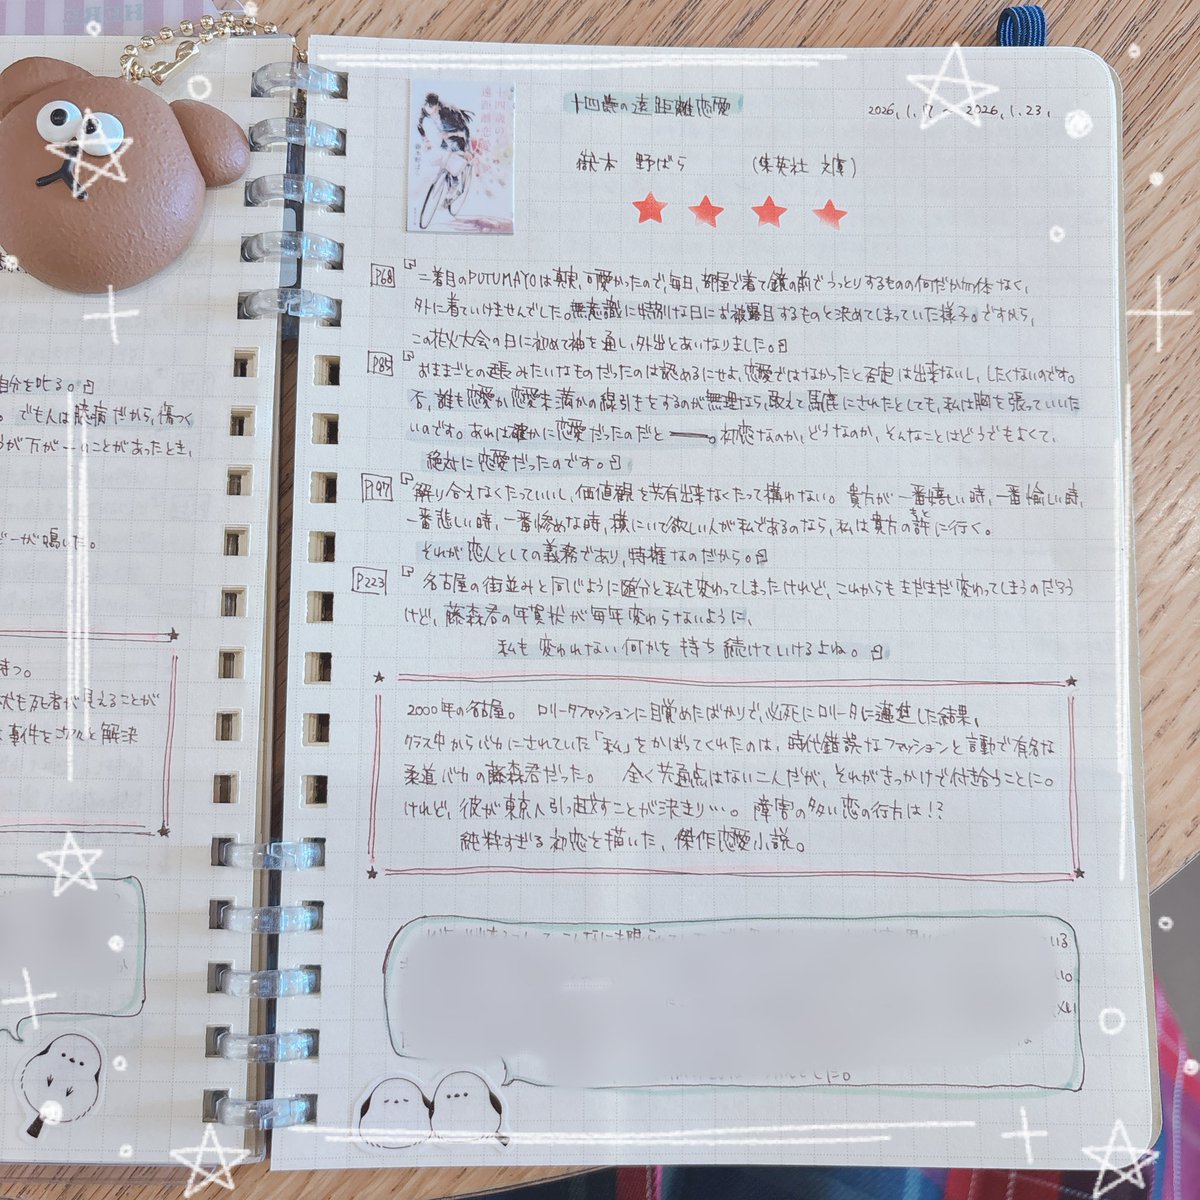 自分を叱る。」
。でも人は臆病だから、傷つく
うが万が一いことがあったとき、
ビーが鳴いた。
持つ。
犬も死者が見えることが
事件を次々と解決
十四歳の遠距離恋愛
2026.1.17 〜 2026.1.23.
嶽本 野ばら (集英社 文庫)
P68 『二着目のPUTUMAYOは真実、可愛かったので、毎日、部屋で着て鏡の前でうっとりするものの何だか勿体なく、
外に着ていけませんでした。無意識に特別な日にお披露目するものと決めてしまっていた様子。ですから、
この花火大会の日に初めて袖を通し、外出とあいなりました。』
P85 『おままごとの延長みたいなものだったのは認めるにせよ、恋愛ではなかったと否定は出来ないし、したくないのです。
否、誰も恋愛か、恋愛未満かの線引きをするのが無理なら、敢えて馬鹿にされたとしても、私は胸を張っていいた
いのです。あれは確かに恋愛だったのだと――。初恋なのか、どうなのか、そんなことはどうでもよくて、
絶対に恋愛だったのです。』
P197 『解り合えなくたっていいし、価値観を共有出来なくたって構わない。貴方が一番嬉しい時、一番愉しい時、
一番悲しい時、一番惨めな時、横にいて欲しい人が私であるのなら、私は貴方の許に行く。
それが恋人としての義務であり、特権なのだから。』
P223 『名古屋の街並みと同じように随分と私も変わってしまったけれど、これからもまだまだ変わってしまうのだろう
けど、藤森君の年賀状が毎年変わらないように、
私も変われない何かを持ち続けていけるよね。』
2000年の名古屋。ロリータファッションに目覚めたばかりで、必死にロリータに邁進した結果、
クラス中からバカにされていた「私」をかばってくれたのは、時代錯誤なファッションと言動で有名な
柔道バカの藤森君だった。 全く共通点はない二人だが、それがきっかけで付き合うことに。
けれど、彼が東京へ引っ越すことが決まり…。障害の多い恋の行方は!?
純粋すぎる初恋を描いた、傑作恋愛小説。
した。